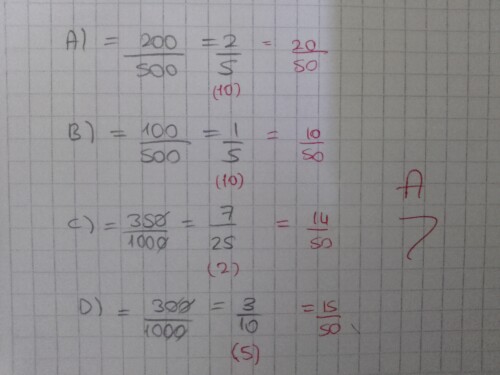 A) = 200/500 = 2/5 = 20/50
(10)
B) = 100/500 = 1/5 = 10/50
(10)
A
C) = 350/1000 = 7/25 = 14/50
(2)
D) = 300/1000 = 3/10 = 15/50
(5)